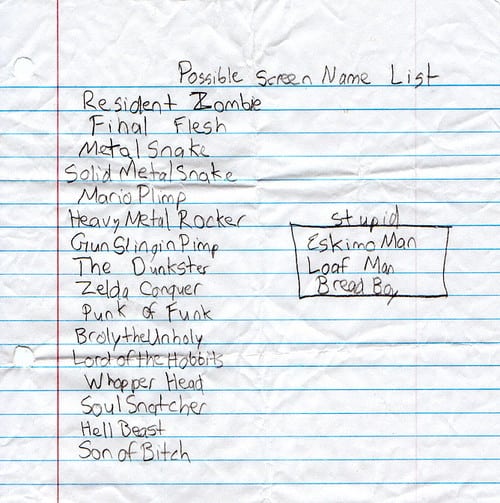 Possible Screen Name List
Resident Zombie
Final Flesh
Metal Snake
Solid Metal Snake
Mario Plimp
Heavy Metal Rocker
Gun Slingin Pimp
The Dunkster
Zelda Conquer
Punk of Funk
Broly the Unholy
Lord of the Hobbits
Whopper Head
Soul Snatcher
Hell Beast
Son of Bitch
Stupid
Eskimo Man
Loaf Man
Bread Boy